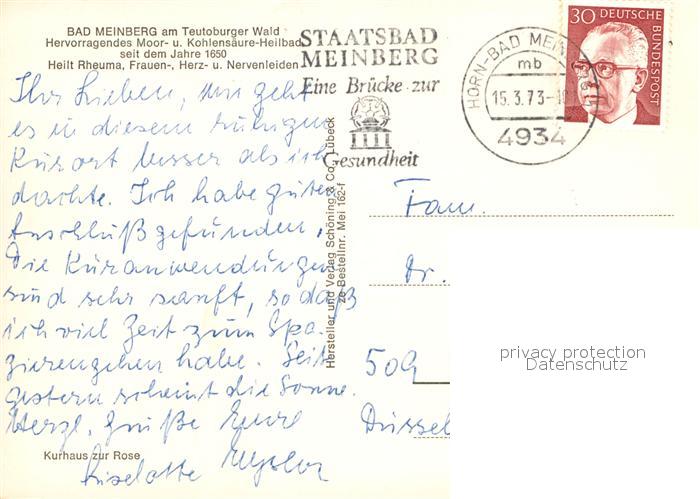 BAD MEINBERG am Teutoburger Wald
Hervorragendes Moor- u. Kohlensäure-Heilbad
seit dem Jahre 1650
Heilt Rheuma, Frauen-, Herz- u. Nervenleiden
STAATSBAD
MEINBERG
Eine Brücke zur
Gesundheit
HORN-BAD MEIN
mb
15.3.73-18
4934
30 DEUTSCHE
BUNDESPOST
Ihr Lieben, mir geht
es in diesem ruhigen
Kurort besser als ich
dachte. Ich habe guten
Anschluß gefunden,
Die Kuranwendungen
sind sehr sanft, so daß
ich viel Zeit zum Spa-
zierengehen habe. Seit
gestern scheint die Sonne.
Herzl. Grüße Eure
Liselotte
Kurhaus zur Rose
Hersteller und Verlag Schöning & Co., Lübeck
ze Bestellnr. Mei 162-f
Fam.
Dr.
509
Düssel
privacy protection
Datenschutz